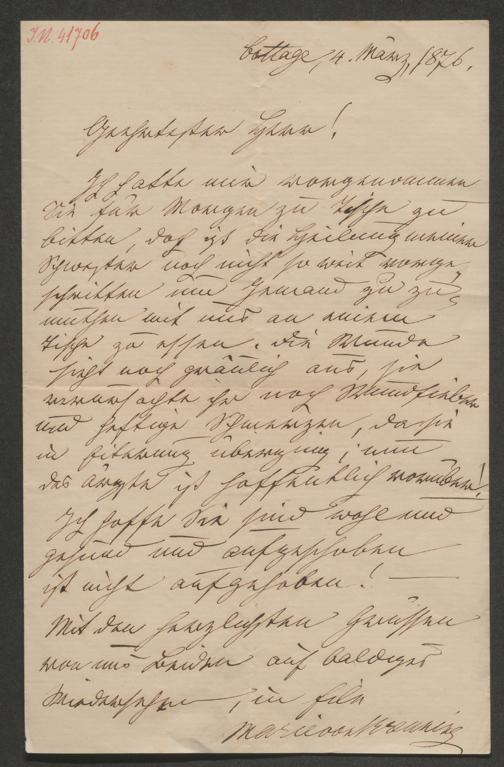 I.N. 41706
Cottage, 4. März, 1876.
Geehrtester Herr!
Ich hatte mir vorgenommen
Sie für Morgen zu Tische zu
bitten, doch ist die Heilung meiner
Schwester noch nicht so weit vorge-
schritten um Jemand zu zu-
muthen mit uns an einem
Tische zu essen. Die Wunde
sieht noch gräulich aus, sie
verursachte ihr noch Wundfieber
und heftige Schmerzen, da sie
in Eiterung überging; nun
das ärgste ist hoffentlich vorüber!
Ich hoffe Sie sind wohl und
gesund und aufgeschoben
ist nicht aufgehoben! —
Mit den herzlichsten Grüssen
von uns Beiden auf baldiges
Wiedersehen, in Eile
Marie von